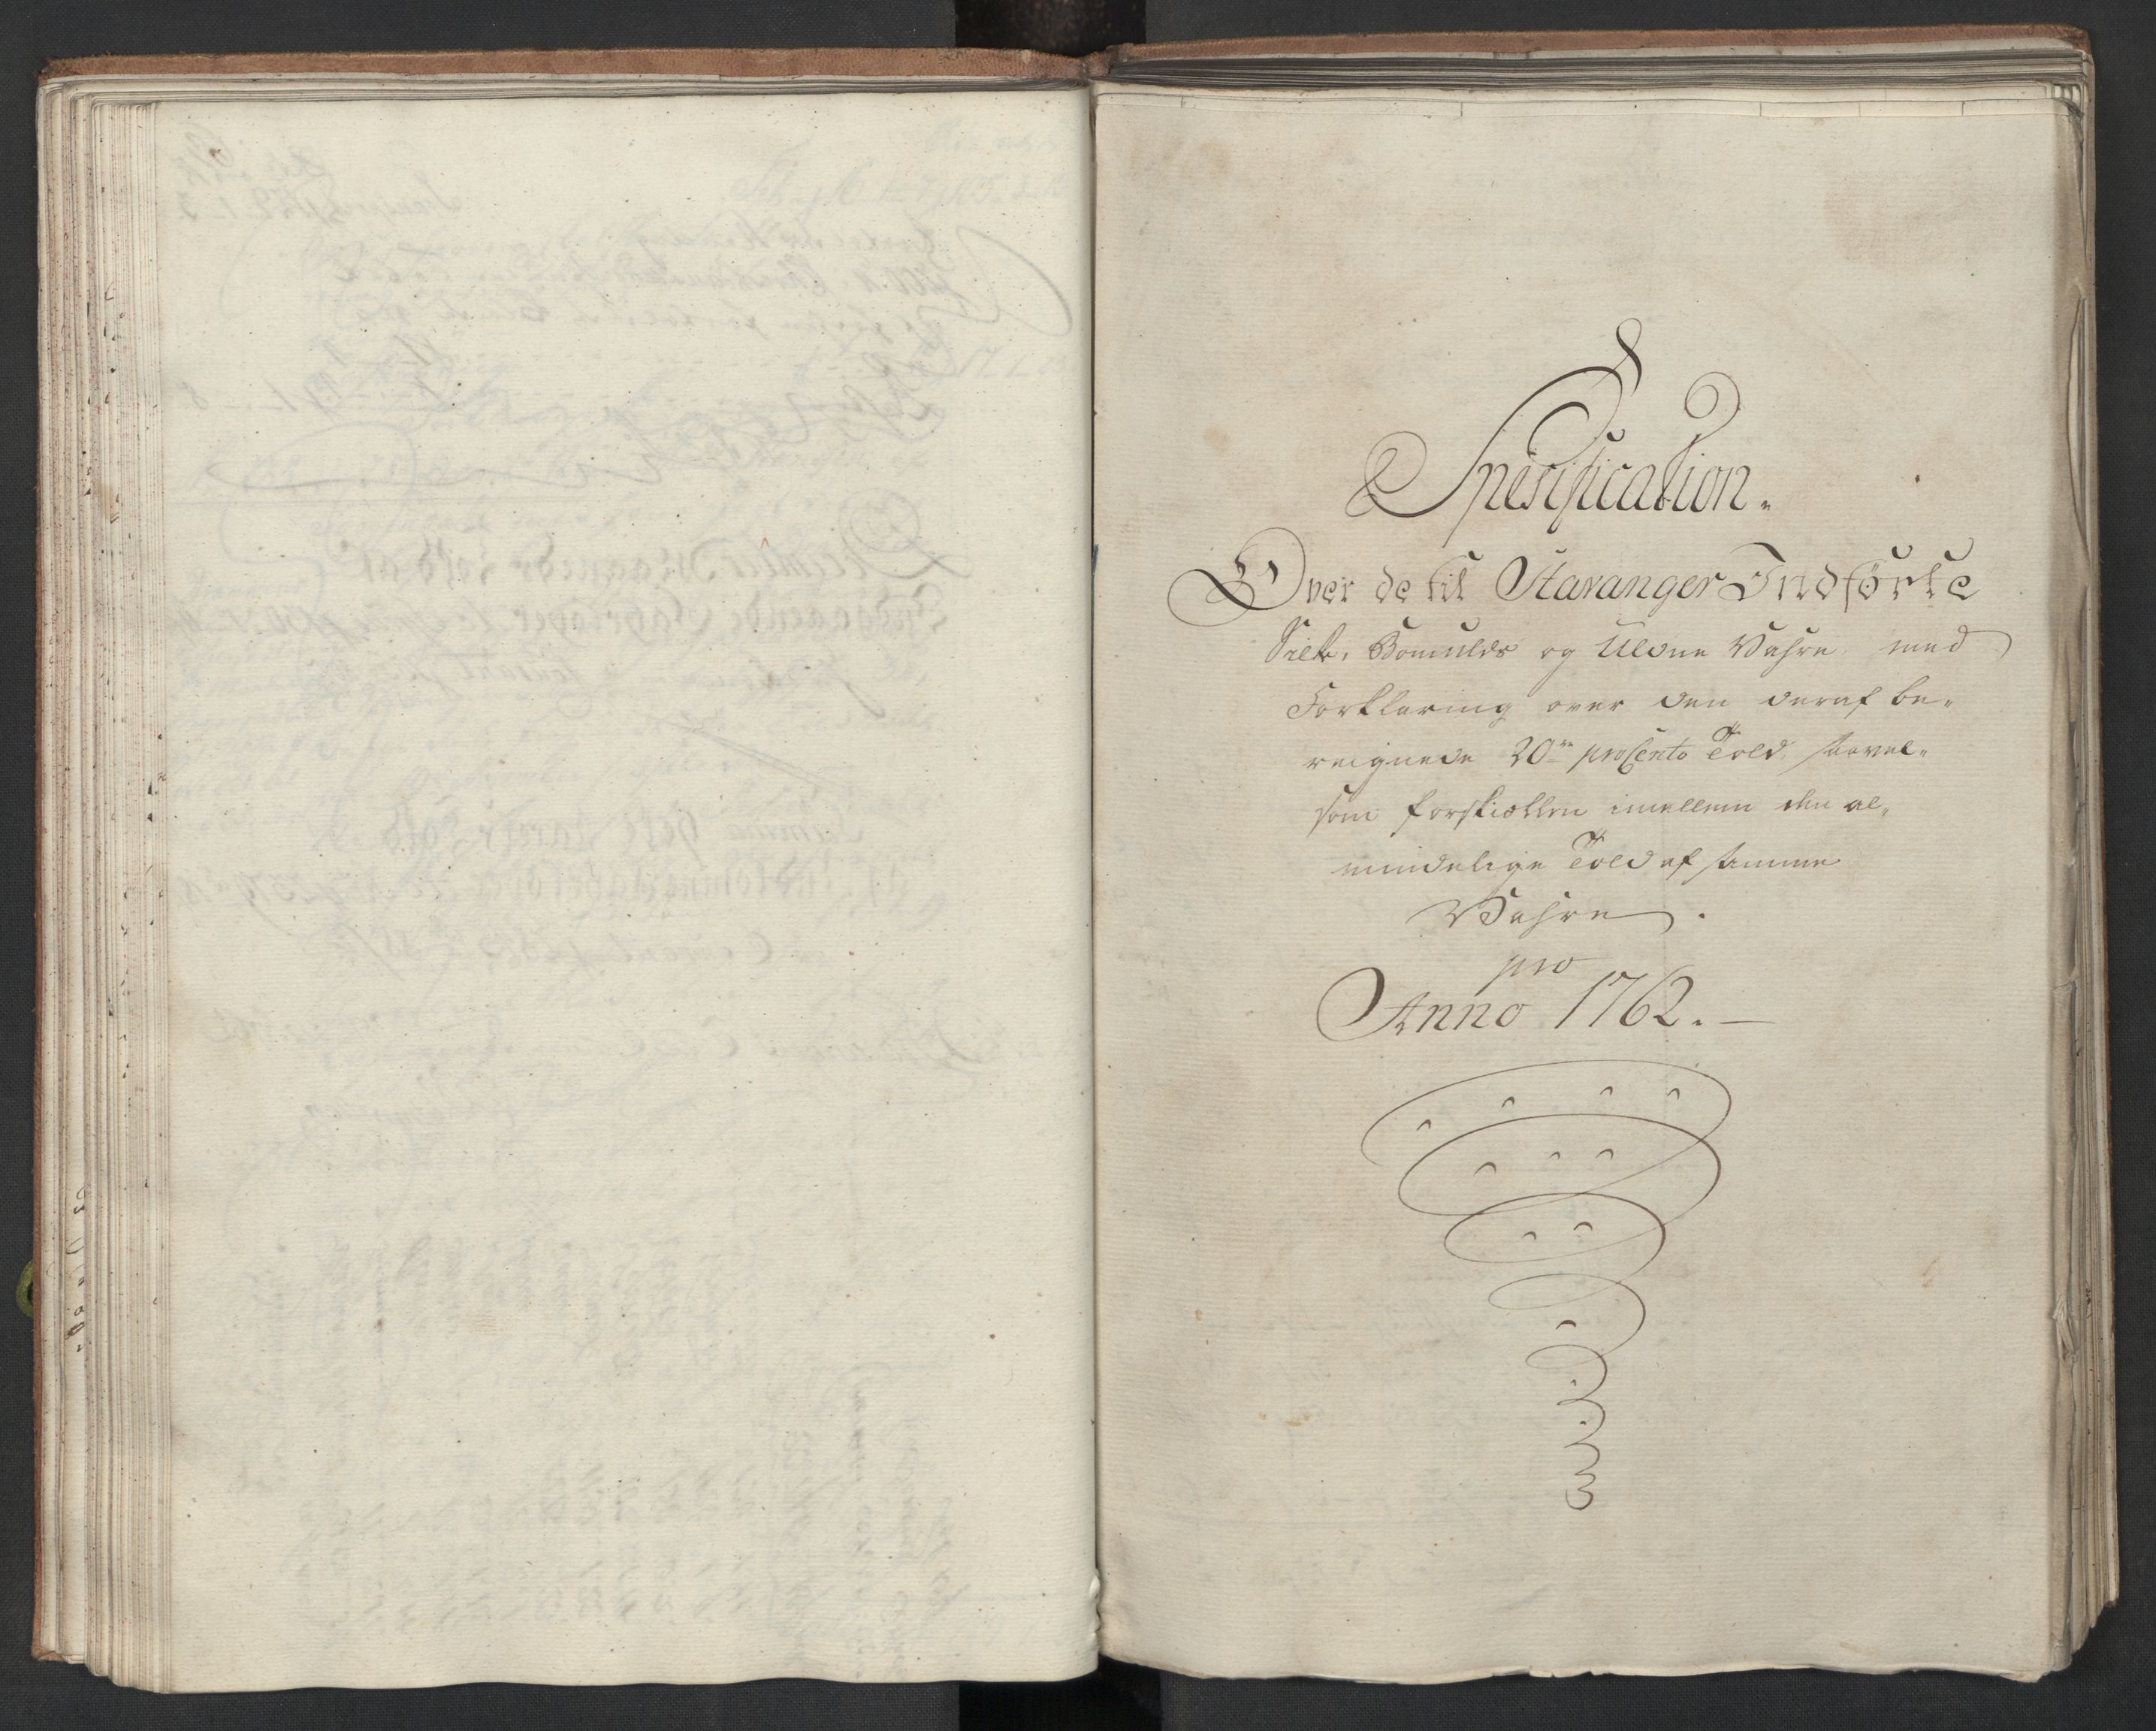 Spesification.
Over de til Stavanger Indförte
Silke, Bomulds og Uldne Vahre med
Forklaring over den deraf be-
reignede 20de proCento Told, saavel-
som forskiællen imellem den al-
mindelige Told af samme
Vahre.
pro
Anno 1762.